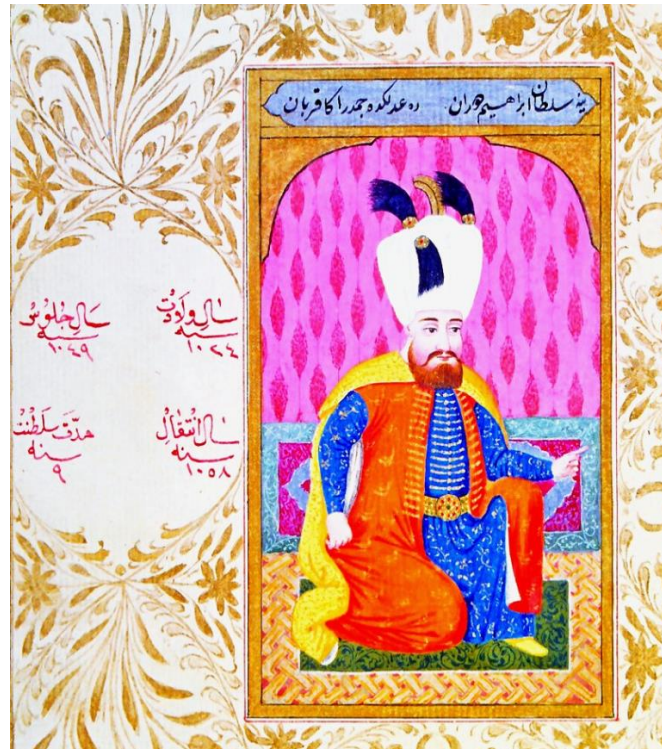 سلطان ابراهیم دوران
ده عدلکده جمدر اکا قربان
سال ولادت
سنه
١٠٢٤
سال جلوس
سنه
١٠٤٩
سال انتقال
سنه
١٠٥٨
مدت سلطنت
سنه
٩